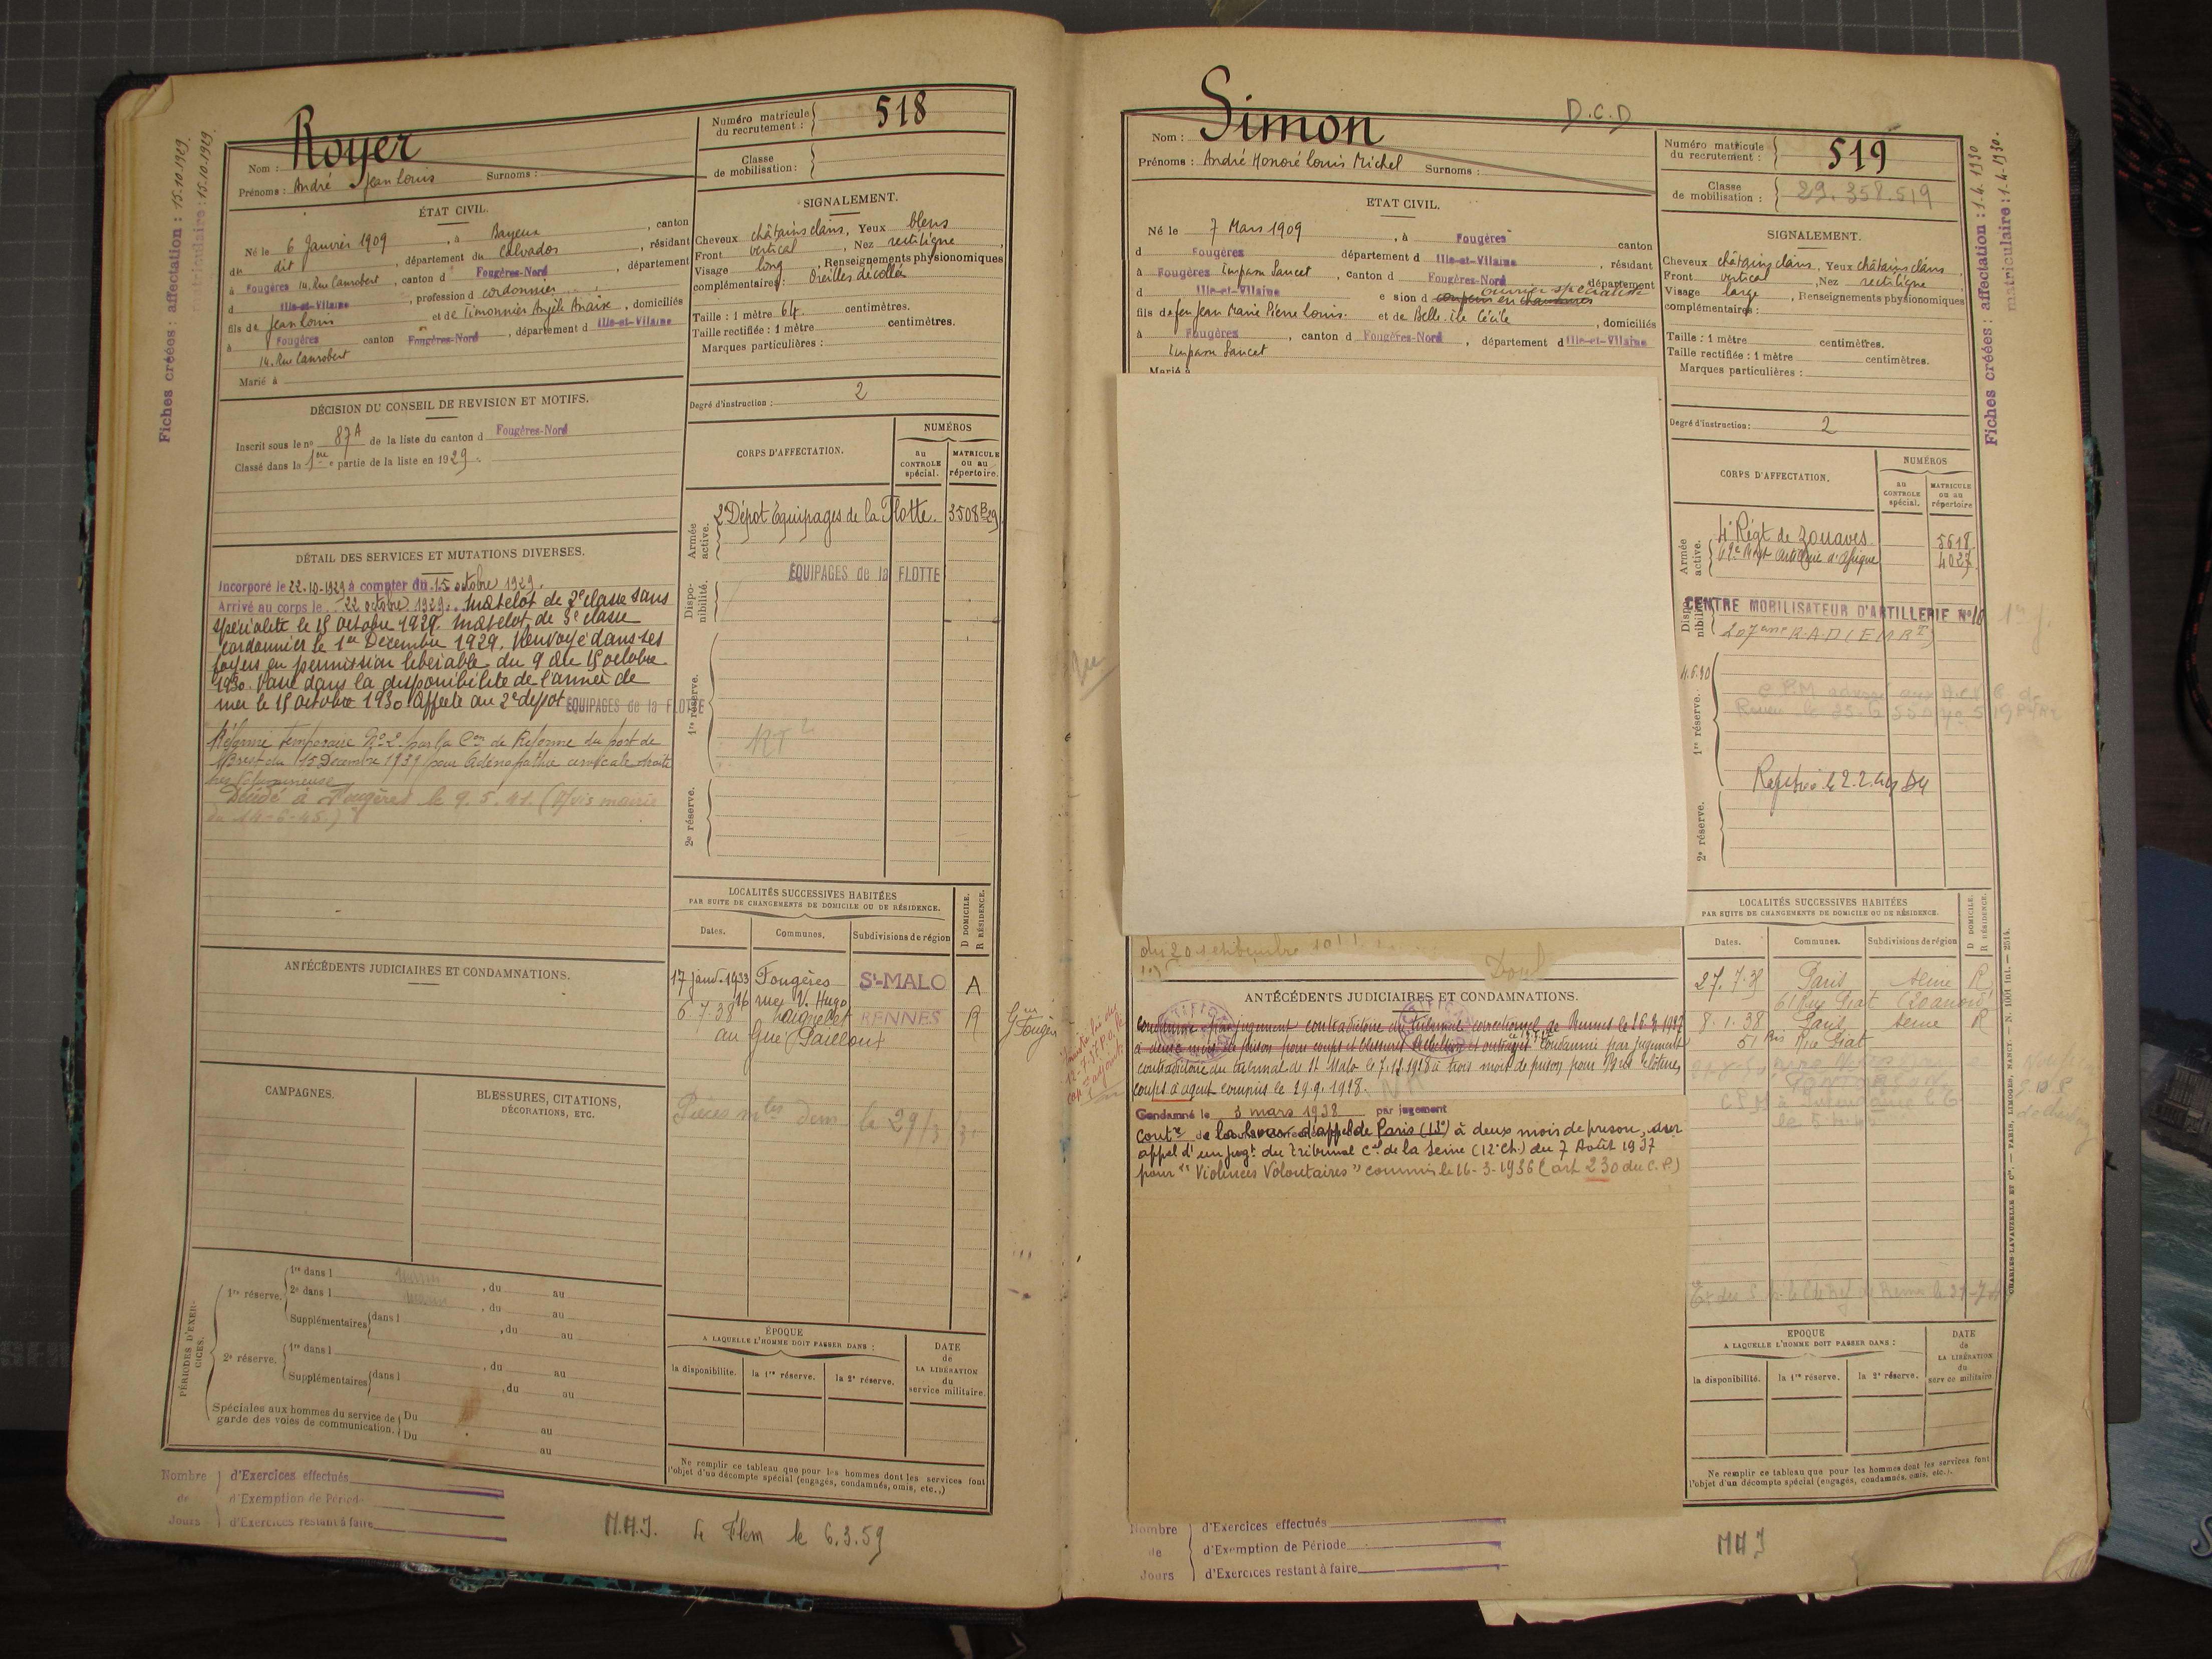 Royer
Nom :
Prénoms : André Jean Louis Surnoms :
Numéro matricule du recrutement : 518
Classe de mobilisation :
ÉTAT CIVIL.
Né le 6 Janvier 1909, à Bayeux, canton
du dit, département du Calvados, résidant
à Fougères 14 Rue Canrobert, canton d Fougères-Nord, département
d Ille-et-Vilaine, profession d cordonnier,
fils de Jean Louis et de Timonnier Angèle Anaïse, domiciliés
à Fougères canton Fougères-Nord, département d Ille-et-Vilaine
14. Rue Canrobert
Marié à
SIGNALEMENT.
Cheveux châtains clairs, Yeux bleus
Front vertical, Nez rectiligne,
Visage long, Renseignements physionomiques
complémentaires : Oreilles décollées
Taille : 1 mètre 64. centimètres.
Taille rectifiée : 1 mètre centimètres.
Marques particulières :
Degré d'instruction : 2
DÉCISION DU CONSEIL DE REVISION ET MOTIFS.
Inscrit sous le n° 87A de la liste du canton d Fougères-Nord
Classé dans la 1ère partie de la liste en 1929.
CORPS D'AFFECTATION.
NUMÉROS
au CONTROLE spécial.
MATRICULE ou au répertoire.
Armée active.
2e Dépôt Equipages de la Flotte. 3508 B 29
Disponibilité.
ÉQUIPAGES de la FLOTTE
1re réserve.
RT2
2e réserve.
DÉTAIL DES SERVICES ET MUTATIONS DIVERSES.
Incorporé le 22.10.1929 à compter du 15 octobre 1929.
Arrivé au corps le 22 octobre 1929. Matelot de 3e classe sans
spécialité le 15 Octobre 1929. Matelot de 3e classe
cordonnier le 1er Décembre 1929. Renvoyé dans ses
foyers en permission libérable du 9 au 15 octobre
1930. Passé dans la disponibilité de l'armée de
mer le 15 Octobre 1930. Affecté au 2e dépôt ÉQUIPAGES de la FLOTTE
Réformé temporaire N° 2 par la Con de Réforme du port de
Brest du 15 Décembre 1939 pour Adénopathie cervicale droite
très volumineuse
Décédé à Fougères le 9.5.41. (Avis mairie
du 14-6-45.)
LOCALITÉS SUCCESSIVES HABITÉES
PAR SUITE DE CHANGEMENTS DE DOMICILE OU DE RÉSIDENCE.
D DOMICILE. R RÉSIDENCE.
Dates. Communes. Subdivisions de région
17 janv. 1933 Fougères St-MALO A
16 rue V. Hugo
6.7.38 Laignelet RENNES R
au Gué Pailloux
Pièces mles dem le 29/3
ANTÉCÉDENTS JUDICIAIRES ET CONDAMNATIONS.
CAMPAGNES.
BLESSURES, CITATIONS, DÉCORATIONS, ETC.
PÉRIODES D'EXERCICES.
1re réserve.
1re dans l , du au
2e dans l , du au
Supplémentaires dans l , du au
2e réserve.
1re dans l , du au
Supplémentaires dans l , du au
Spéciales aux hommes du service de garde des voies de communication.
Du au
Du au
ÉPOQUE
A LAQUELLE L'HOMME DOIT PASSER DANS :
la disponibilité. la 1re réserve. la 2e réserve.
DATE de LA LIBÉRATION du service militaire.
Ne remplir ce tableau que pour les hommes dont les services font
l'objet d'un décompte spécial (engagés, condamnés, omis, etc.,)
Nombre de Jours
d'Exercices effectués
d'Exemption de Période
d'Exercices restant à faire
M.A.J. Le Flem le 6.3.59
Fiches créées : affectation : 15.10.1929.
matriculaire : 15.10.1929.
Simon
D.C.D
Nom :
Prénoms : André Honoré Louis Michel Surnoms :
Numéro matricule du recrutement : 519
Classe de mobilisation : 29.358.519
ETAT CIVIL.
Né le 7 Mars 1909, à Fougères canton
d Fougères département d Ille-et-Vilaine, résidant
à Fougères Impasse Sancet, canton d Fougères-Nord, département
d Ille-et-Vilaine e sion d coupeur en chaussures ouvrier spécialisé
fils de feu Jean Marie Pierre Louis. et de Belle-Ile Cécile, domiciliés
à Fougères, canton d Fougères-Nord, département d Ille-et-Vilaine
Impasse Sancet
Marié à
SIGNALEMENT.
Cheveux châtains clairs, Yeux châtains clairs,
Front vertical, Nez rectiligne
Visage large, Renseignements physionomiques
complémentaires :
Taille : 1 mètre centimètres.
Taille rectifiée : 1 mètre centimètres.
Marques particulières :
Degré d'instruction : 2
CORPS D'AFFECTATION.
NUMÉROS
au CONTROLE spécial.
MATRICULE ou au répertoire
Armée active.
4e Régt de Zouaves. 5618
62e Régt Artillerie d'Afrique 4027
Disponibilité.
CENTRE MOBILISATEUR D'ARTILLERIE N° 16
1re réserve.
2e réserve.
du 20 septembre
ANTÉCÉDENTS JUDICIAIRES ET CONDAMNATIONS.
Condamné par jugement contradictoire du tribunal correctionnel de Rennes le
à deux mois de prison pour coups et blessures rébellion et outrages. Condamné par jugement
contradictoire du tribunal de St Malo le 7.12.1928 à trois mois de prison pour Bris de clôture,
coups à agent commis le 29.9.1928.
Condamné le 3 mars 1938 par jugement
contre de la Cour d'appel de Paris à deux mois de prison, sur
appel d'un jugt du Tribunal Cel de la Seine (12e Ch.) du 7 Août 1937
pour "Violences Volontaires" commis le 16-3-1936 (art 230 du C.P.)
LOCALITÉS SUCCESSIVES HABITÉES
PAR SUITE DE CHANGEMENTS DE DOMICILE OU DE RÉSIDENCE.
D DOMICILE. R RÉSIDENCE.
Dates. Communes. Subdivisions de région
27.7.35 Paris Seine R
61 Rue Piat
8.1.38 Paris Seine R
51 bis Rue Piat
EPOQUE
A LAQUELLE L'HOMME DOIT PASSER DANS :
la disponibilité. la 1re réserve. la 2e réserve.
DATE de LA LIBÉRATION du service militaire
Ne remplir ce tableau que pour les hommes dont les services font
l'objet d'un décompte spécial (engagés, condamnés, omis, etc.).
Nombre de Jours
d'Exercices effectués
d'Exemption de Période
d'Exercices restant à faire
MAJ
Fiches créées : affectation : 1.4.1930
matriculaire : 1.4.1930.
CHARLES-LAVAUZELLE ET Cie. — PARIS, LIMOGES, NANCY. — N. 1001 Int. — 2514.